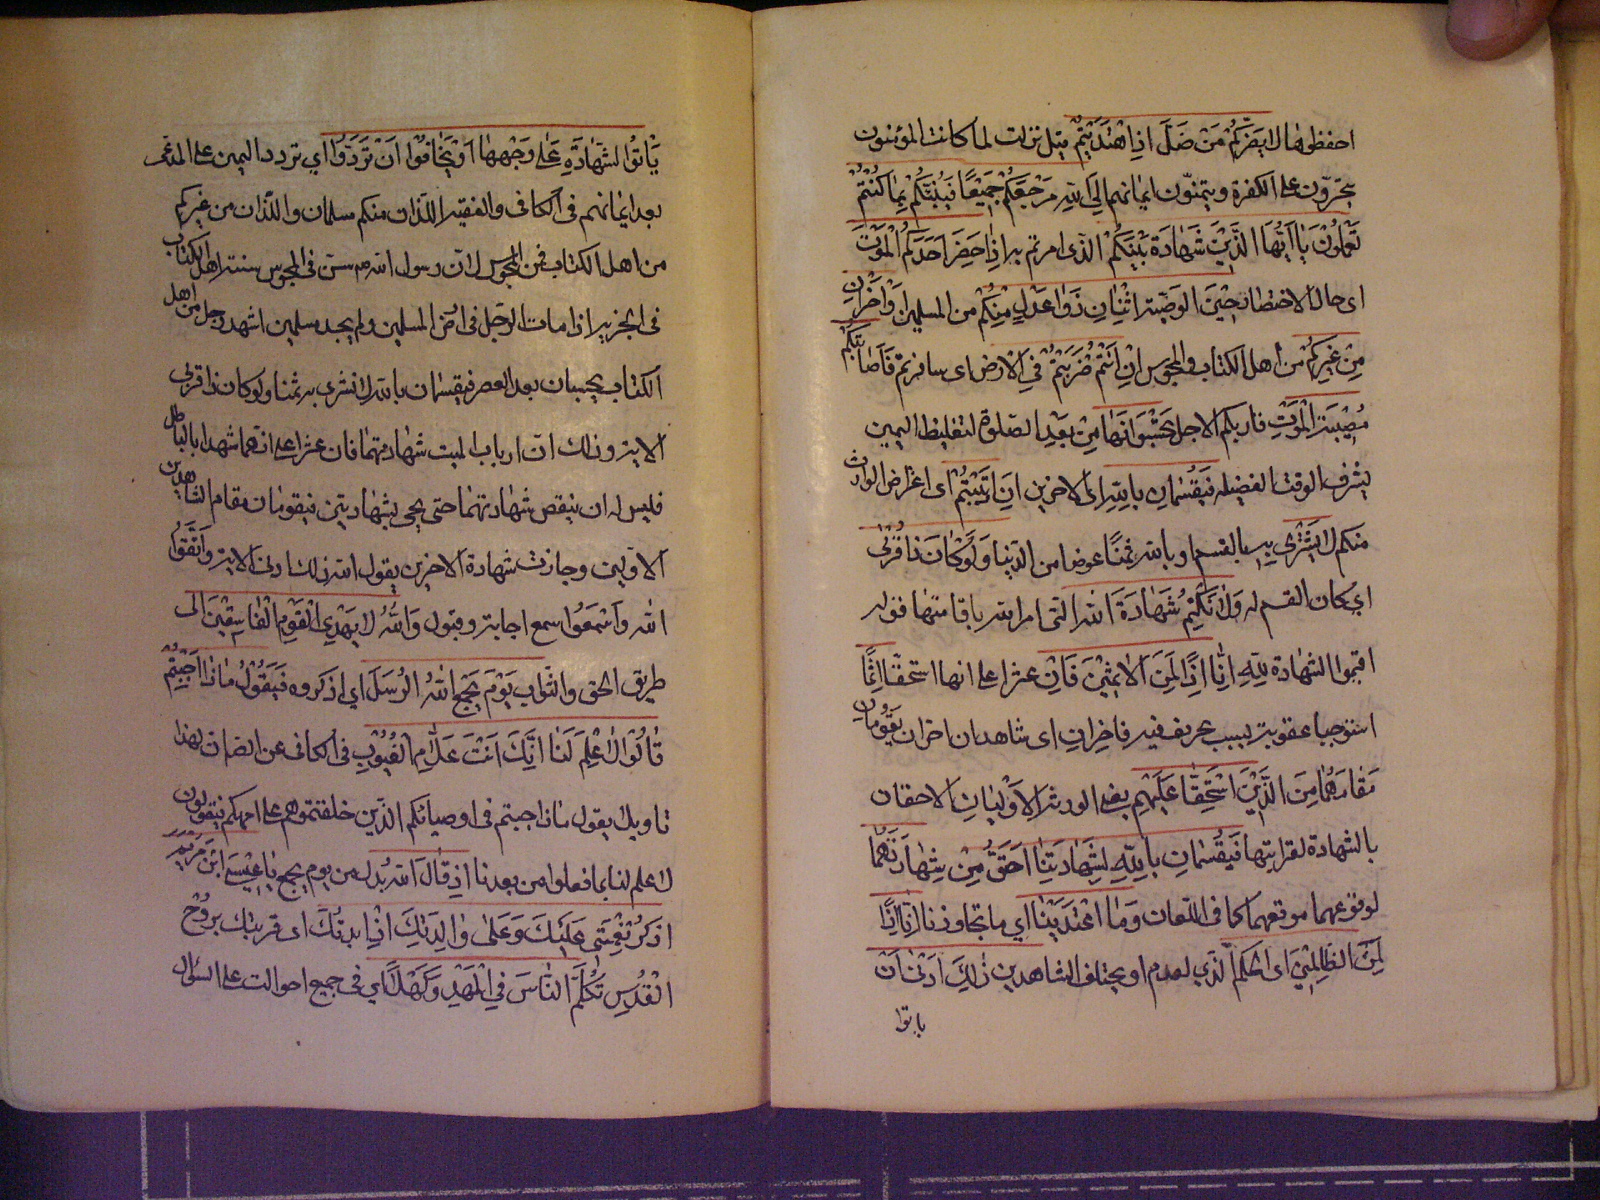 احفظوها لا يضركم من ضل اذا اهتديتم قيل نزلت لما كانت المؤمنون
يتحرون على الكفرة ويتمنون ايمانهم الى الله مرجعكم جميعا فينبئكم بما كنتم
تعملون يا ايها الذين شهادة بينكم الذى امرتم به اذا حضر احدكم الموت
اى حال الاحتضار حين الوصية اثنان ذوا عدل منكم من المسلمين او اخران
من غيركم من اهل الكتاب والمجوس ان انتم ضربتم في الارض اى سافرتم فاصابتكم
مصيبة الموت قاربكم الاجل تحبسونها من بعد الصلوة لتغليظ اليمين
بشرف الوقت الفضيلة فيقسمان بالله اى الاخرين ان ارتبتم اى اعتراض الوارث
منكم لا نشترى به بالقسم او بالله ثمنا عوضا من الدنيا ولو كان ذا قربى
اى كان القسم له ولا نكتم شهادة الله التى امر الله باقامتها قوله
اقيموا الشهادة لله انا اذا لمن الاثمين فان عثر اعلى انهما استحقا اثما
استوجبا عقوبة بسبب تحريف فيه فاخران اى شاهدان اخران يقومان
مقامهما من الذين استحقا عليهم يعنى الورثة الاوليان الاحقان
بالشهادة لقرابتهما فيقسمان بالله لشهادتنا احق من شهادتهما
لوقوعهما موقعهما كما فى اللعان وما اعتدينا اي ما تجاوزنا انا اذا
لمن الظالمين اى الحكم الذي تقدم او يحلف الشاهدين ذلك ادنى ان
ياتوا
ياتوا الشهادة على وجهها او يخافوا ان تردوا اي تردد اليمين على المدعى
بعد ايمانهم فى الكافى والفقيه اللذان منكم مسلمان واللذان من غيركم
من اهل الكتاب فمن المجوس لان رسول الله ص سن فى المجوس سنة اهل الكتاب
فى الجزية اذا مات الرجل فى ارض المسلمين ولم يجد مسلمين اشهد رجل من اهل
الكتاب يحبسان بعد العصر فيقسمان بالله لا نشترى به ثمنا ولو كان ذا قربى
الاية وذلك ان ارباب الميت شهادتهما فان عثر على انهما شهدا بالباطل
فليس له ان ينقض شهادتهما حتى يجى بشهادتين فيقومان مقام الشاهدين
الاولين وجازت شهادة الاخرين يقول الله ذلك ادنى الاية واتقوا
الله واسمعوا سمع اجابة وقبول والله لا يهدي القوم الفاسقين الى
طريق الحق والثواب يوم يجمع الله الرسل اي اذكروه فيقول ماذا اجبتم
قالوا لا علم لنا انك انت علام الغيوب فى الكافى عن ان لهذا
تاويل يقول ماذا اجبتم فى اوصيائكم الذين خلفتموهم على اممكم فيقولون
لا علم لنا بما فعلوا من بعدنا اذ قال الله بدل من يوم يجمع يا عيسى ابن مريم
اذكر نعمتي عليك وعلى والدتك اذ ايدتك اى قويتك بروح
القدس تكلم الناس في المهد وكهلا اي فى جميع احوالك على السؤال